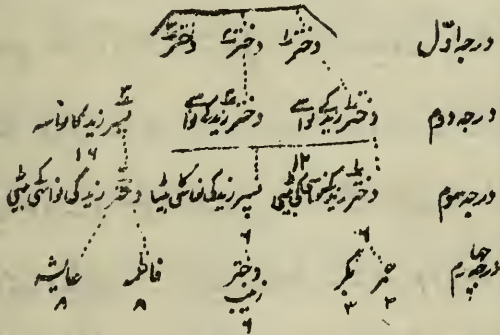 درجہ اوّل دختر دختر دختر
درجہ دوم دختر زید کی نواسے دختر زید کی نواسے پسر زید کا نواسہ
۱۲ ۱۶
درجہ سوم دختر زید کی نواسی کی بیٹی پسر زید کی نواسی کا بیٹا دختر زید کی نواسے کی بیٹی
۶ ۶
درجہ چہارم عمر بکر دختر زینب فاطمہ عائشہ
۳ ۳ ۶ ۸ ۸